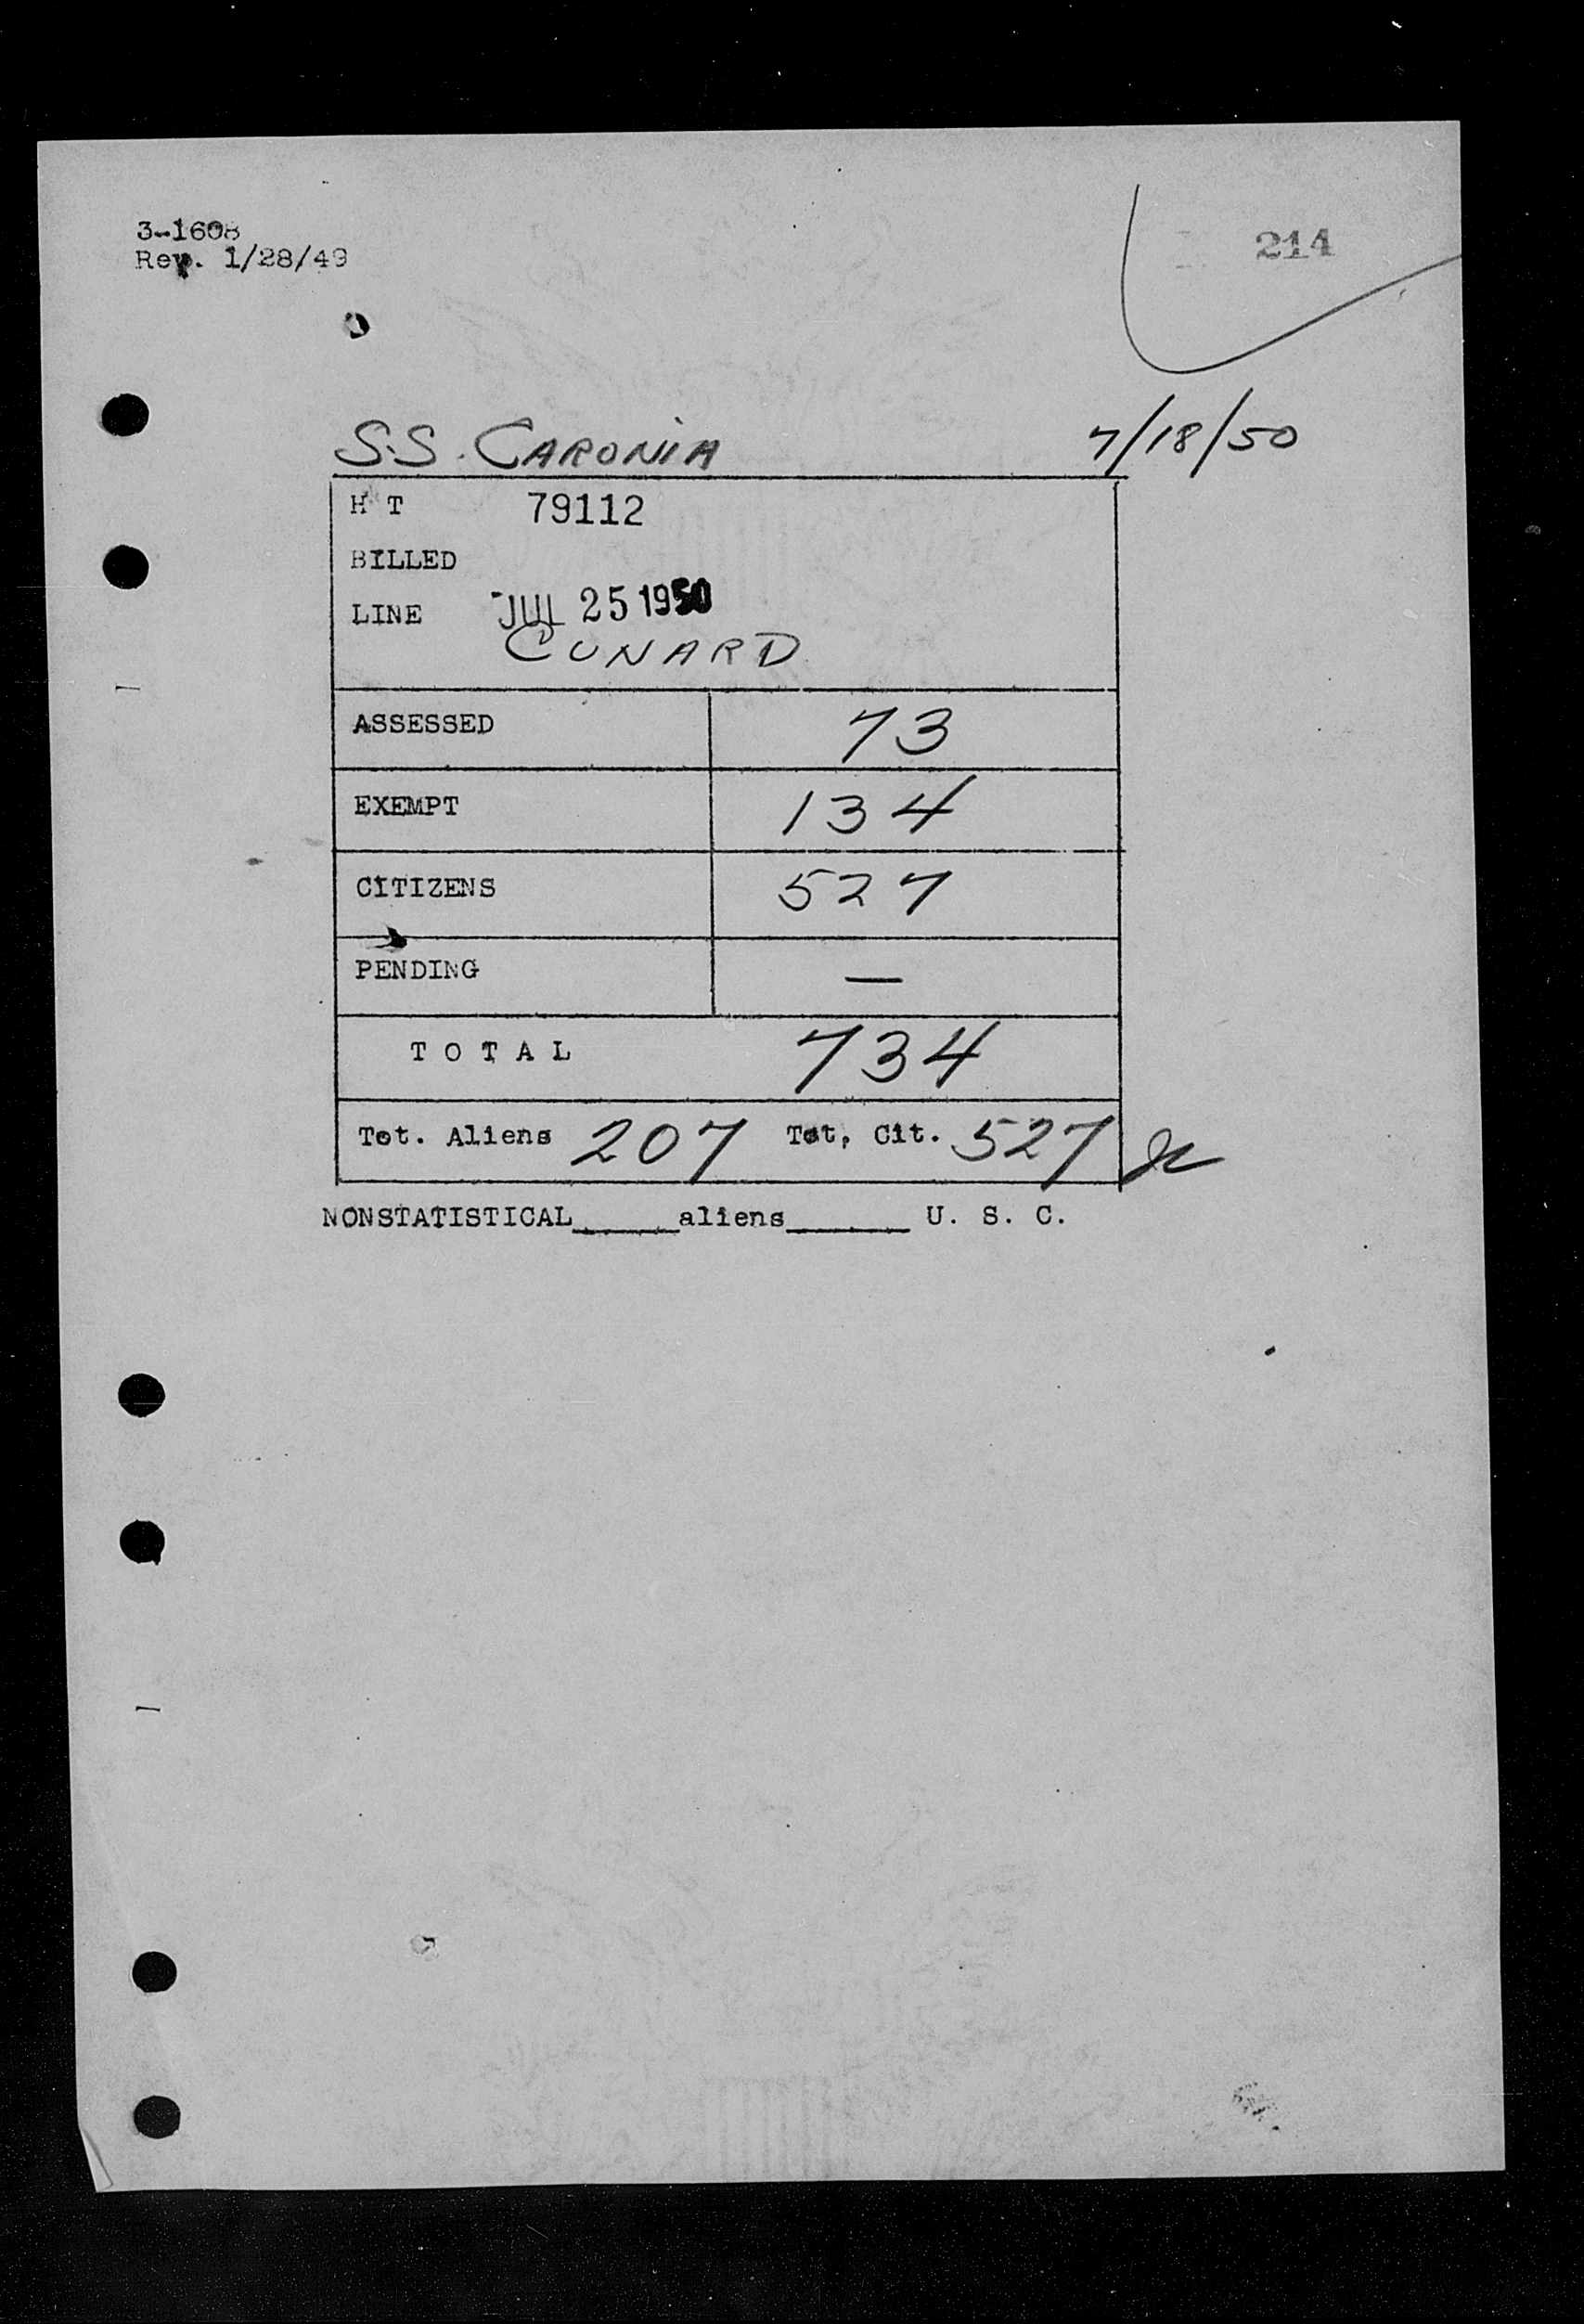 3-1608
Rev. 1/28/49
214
S.S. CARONIA 7/18/50
H T 79112
BILLED
LINE JUL 25 1950
CUNARD
ASSESSED 73
EXEMPT 134
CITIZENS 527
PENDING —
TOTAL 734
Tot. Aliens 207 Tot. Cit. 527
NONSTATISTICAL_____aliens______ U. S. C.